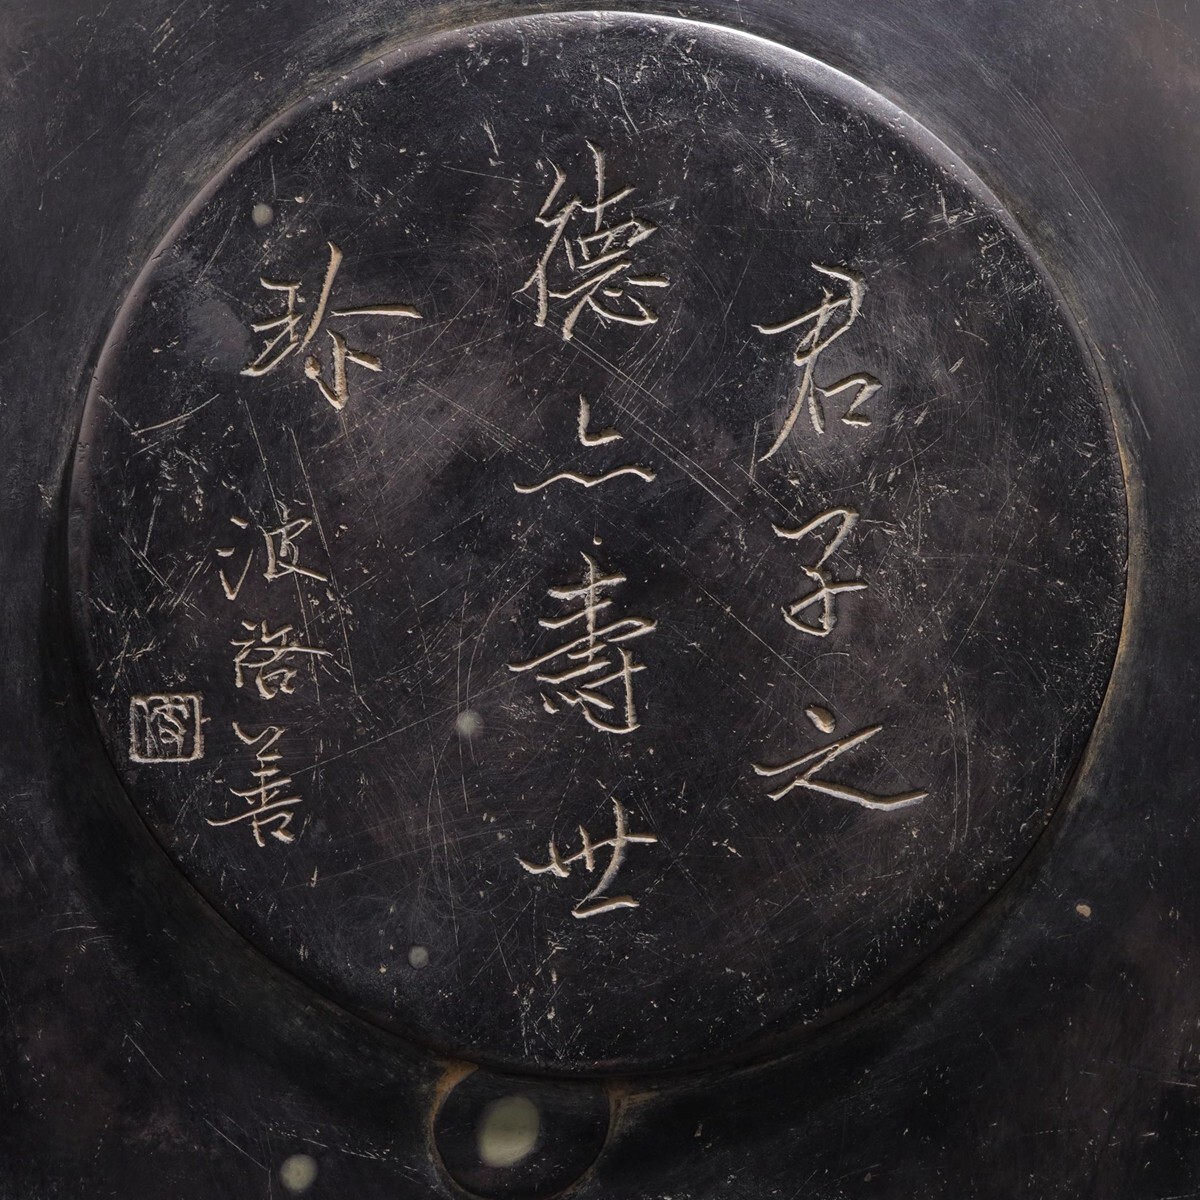 君子之
德亦壽世
珍
波啓善